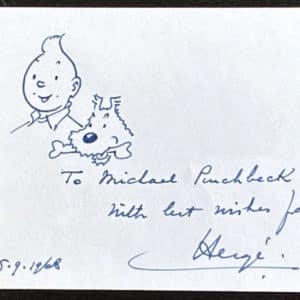 To Michael Pinchbeck
With best wishes
Hergé.
.9.1968